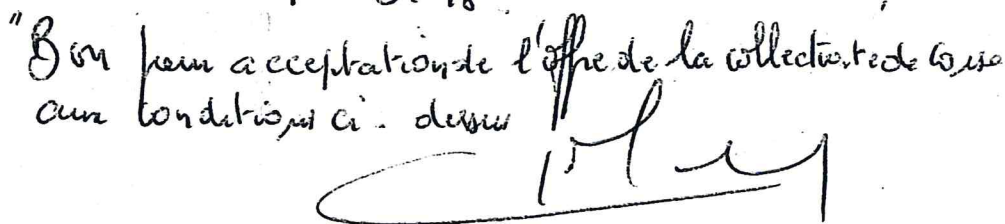 "Bon pour acceptation de l'offre de la collectivité de Corse
aux conditions ci-dessus